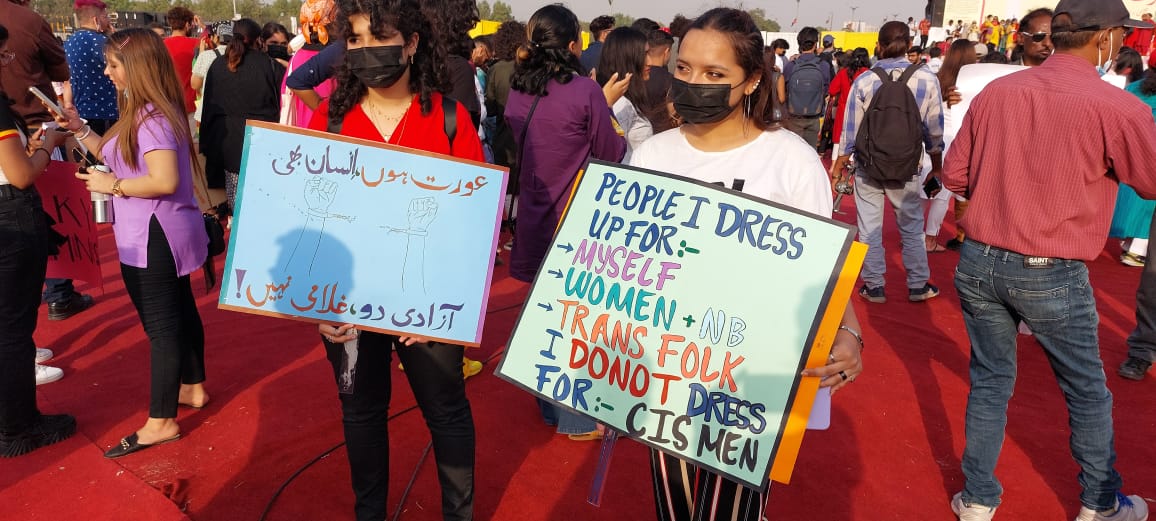 عورت ہوں، انسان بھی
آزادی دو، غلامی نہیں!
PEOPLE I DRESS
UP FOR:-
→MYSELF
→WOMEN + NB
→TRANS FOLK
I DO NOT DRESS
FOR:- CIS MEN
SAINT